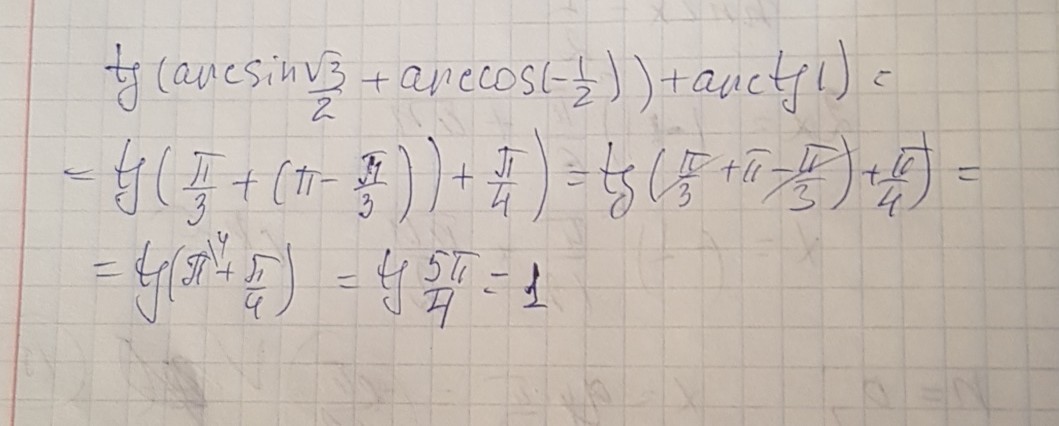 tg(arcsin √3/2 + arccos(-1/2)) + arctg1) =
= tg(π/3 + (π - π/3)) + π/4) = tg(π/3 + π - π/3) + π/4) =
= tg(π\4 + π/4) = tg 5π/4 = 1